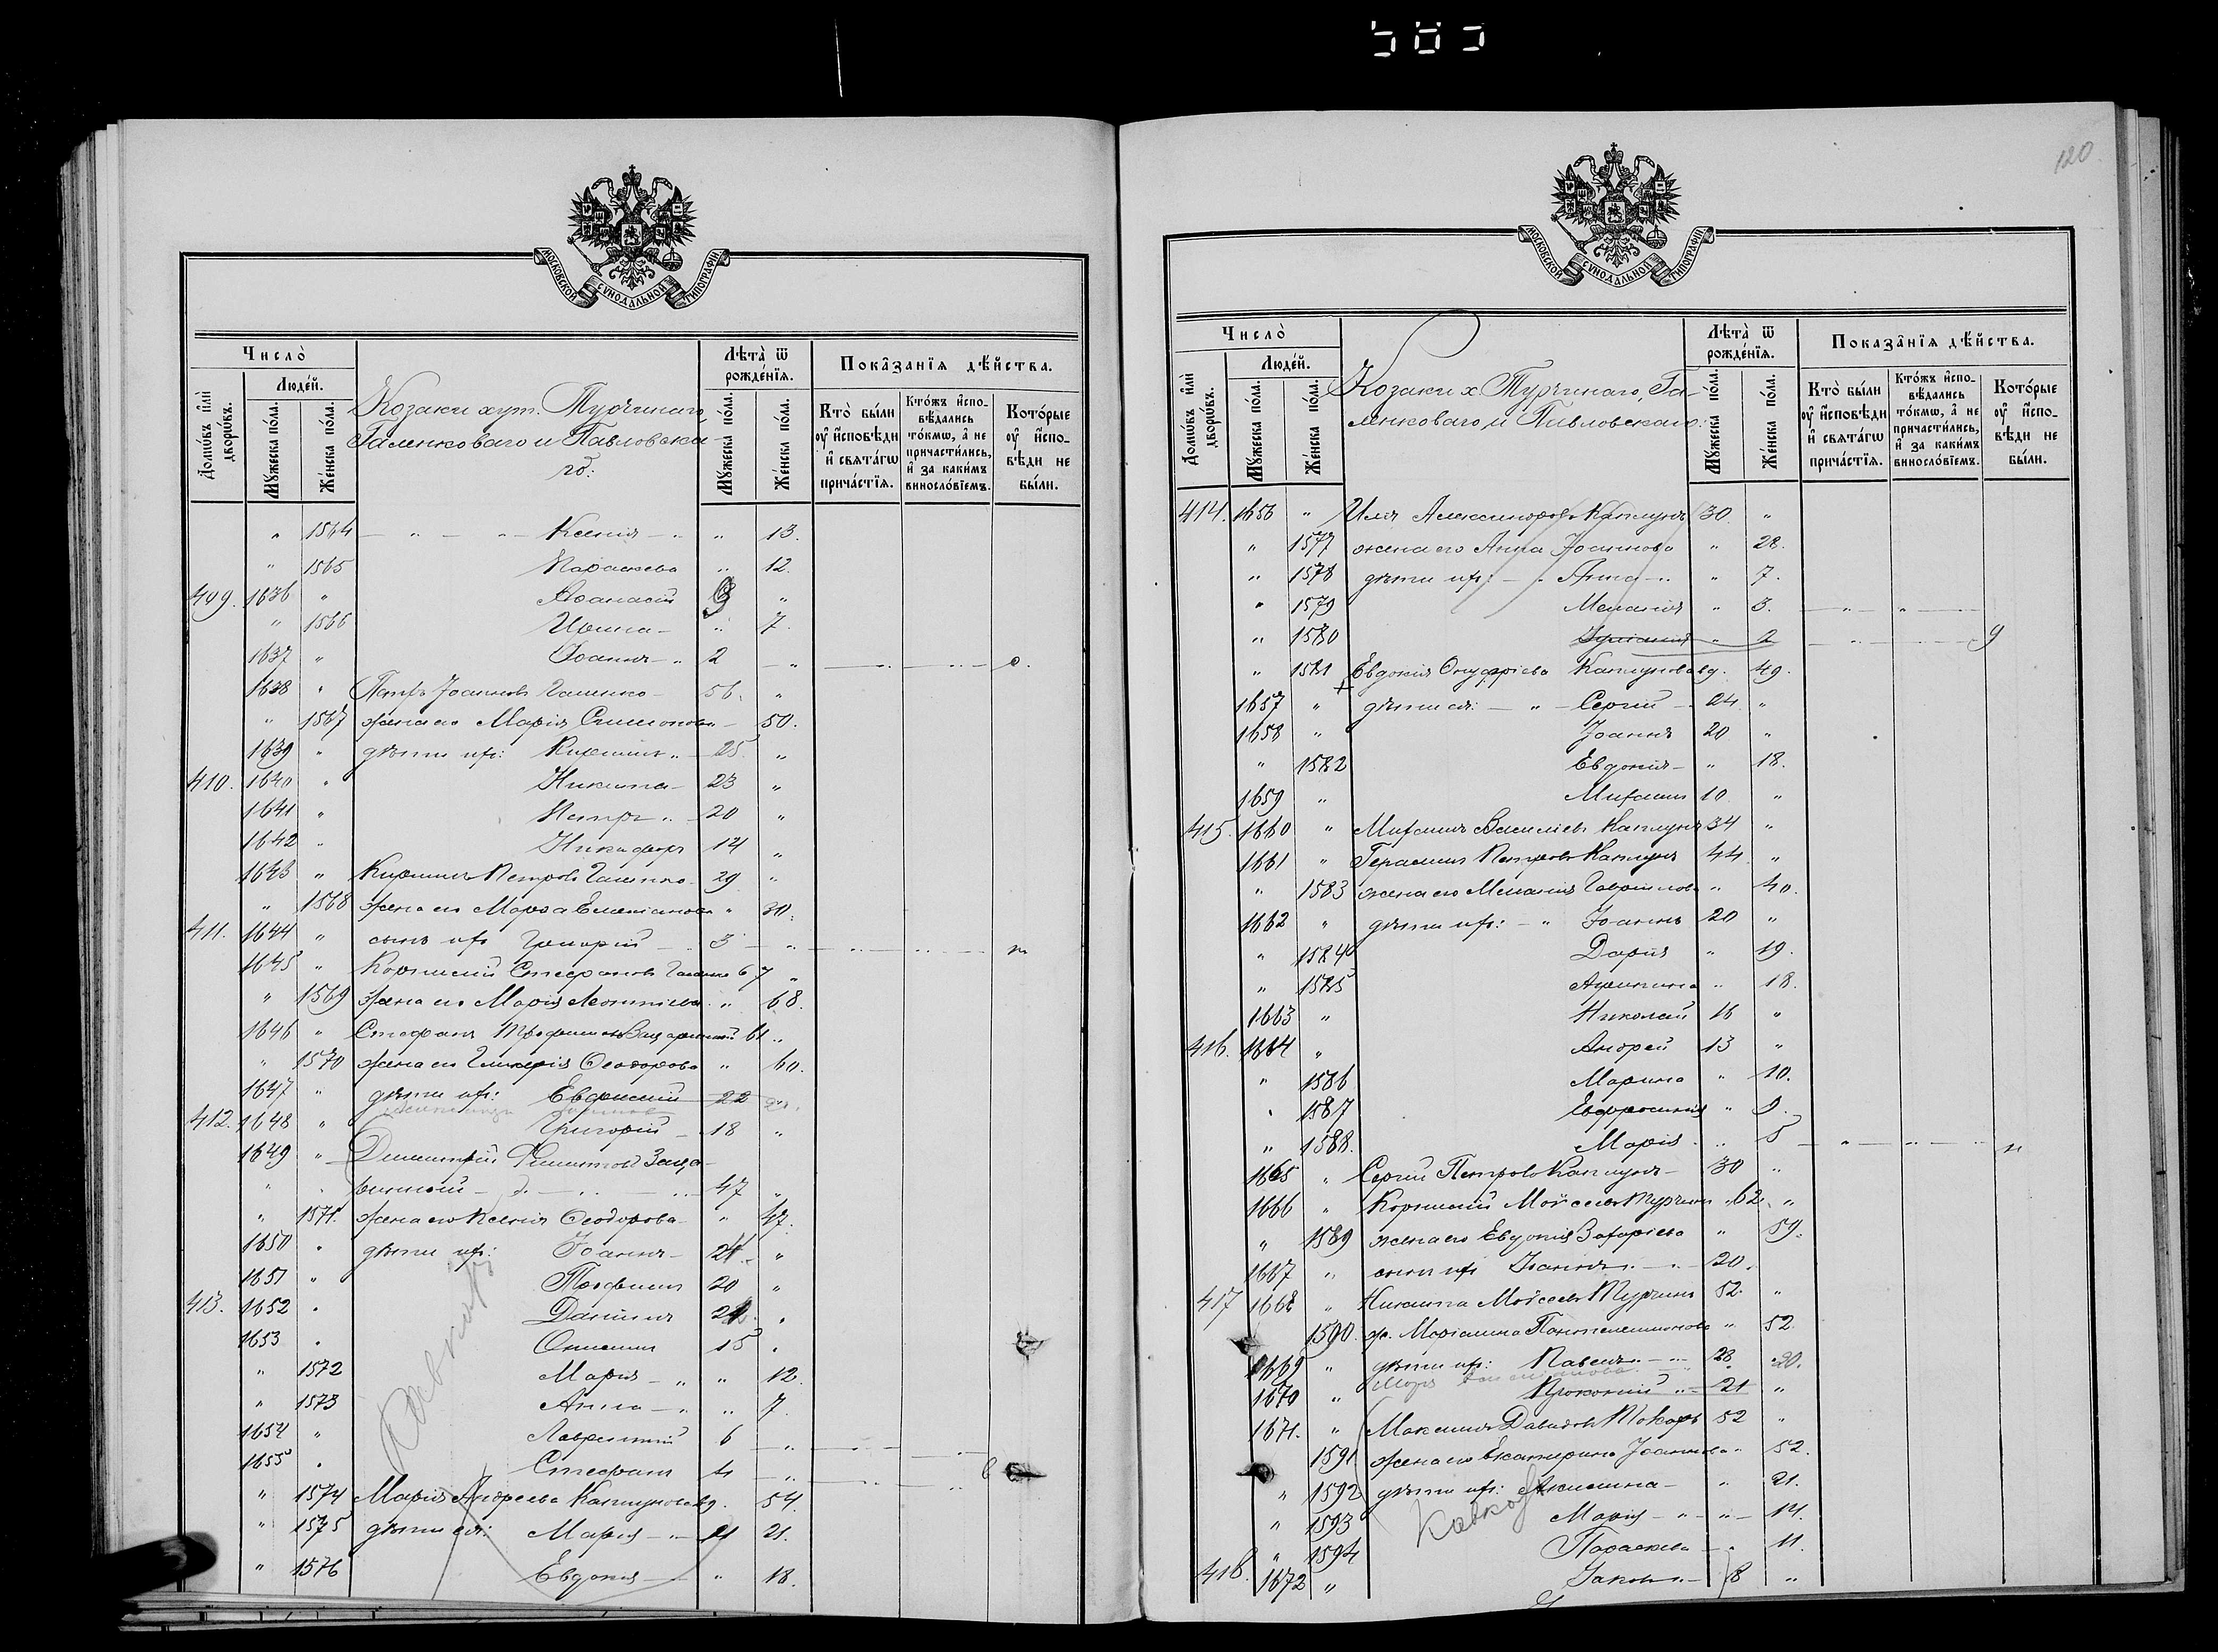 120
МОСКОВСКОЙ СУНОДАЛЬНОЙ ТИПОГРАФІИ
Число̀
Людéй.
Домѡвъ и҆лѝ дворѡвъ.
Мꙋжеска пóла.
Жéнска пóла.
Козаки хут. Турчинаго,
Галенковаго и Павловска-
го:
Лѣта̀ ѿ рождéнїѧ.
Мꙋжеска пóла.
Жéнска пóла.
Показанїѧ дѣйства.
Кто̀ были ᲂу҆ и҆сповѣди и҆ свѧтáгѡ причáстїѧ.
Ктóжъ и҆сповѣдались тóкмѡ, а҆ не причастились, и҆ за какимъ винослóвїемъ.
Котóрые ᲂу҆ и҆сповѣди не были.
" 1564 — " — " — Ксенія — " " 13.
" 1565 Параскева " 12.
409. 1636 " Аѳанасій "
" 1566 Ирина — " 7.
1637 " Іоаннъ — " 2 — "
1638 " Петръ Іоанновъ Галенко — 56. "
" 1567 жена его Марія Симонова — 50.
1639 " дѣти ихъ: Кириллъ " — 25. "
410. 1640 " Никита — 23 "
1641 " Петръ " — 20 "
1642 " Никифоръ 14 "
1643 " Кириллъ Петровъ Галенко 29 "
" 1568 жена его Марѳа Емельянова " 30.
411. 1644 " сынъ ихъ Григорій — 3 — "
1645 " Корнилій Стефановъ Галенко 67 "
" 1569 жена его Марія Леонтіева " 68.
1646 " Стефанъ Трофимовъ 61 "
" 1570 жена его Гликерія Ѳеодорова " 60.
1647 " дѣти ихъ: Евфимій 22 "
412. 1648 " Григорій — 18 "
1649 " Димитрій Филипповъ
" " — " — " — " 47 "
" 1571. жена его Ксенія Ѳеодорова — " 47.
1650 " дѣти ихъ: Іоаннъ — "
1651 " Трофимъ 20 "
413. 1652 " Даніилъ "
1653 " Онисимъ 15 "
" 1572 Марія — " " 12.
" 1573 Анна — " " 7.
1654 " Лаврентій 6 — "
1655 " Стефанъ 4 — "
" 1574 Марія Андреева Каплунова вд. 54.
" 1575 дѣти ея: Марія — " 21.
" 1576 Евдокія — " 18.
МОСКОВСКОЙ СУНОДАЛЬНОЙ ТИПОГРАФІИ
Число̀
Людéй.
Домѡвъ и҆лѝ дворѡвъ.
Мꙋжеска пóла.
Жéнска пóла.
Козаки х. Турчинаго, Га-
ленковаго и Павловскаго:
Лѣта̀ ѿ рождéнїѧ.
Мꙋжеска пóла.
Жéнска пóла.
Показанїѧ дѣйства.
Кто̀ были ᲂу҆ и҆сповѣди и҆ свѧтáгѡ причáстїѧ.
Ктóжъ и҆сповѣдались тóкмѡ, а҆ не причастились, и҆ за какимъ винослóвїемъ.
Котóрые ᲂу҆ и҆сповѣди не были.
414. 1656 " Илія Александровъ Каплунъ 30. "
" 1577 жена его Анна Іоаннова " 28.
" 1578 дѣти ихъ: — " Анна — " " 7.
" 1579 Меланія " 3. — " — " —
" 1580 " 2
" 1581 Евдокія Онуфріева Каплунова вд. 49.
1657 " дѣти ея: — " — Сергій — 24 "
1658 " Іоаннъ 20 "
" 1582 Евдокія — " 18.
1659 " Михаилъ 10 "
415. 1660 " Михаилъ Василіевъ Каплунъ 34 "
1661 " Герасимъ Петровъ Каплунъ 44 "
" 1583 жена его Меланія Гавріилова " 40.
1662 " дѣти ихъ: — " Іоаннъ 20 "
" 1584 Дарія " 19.
" 1585 Акилина " 18.
1663 " Николай 16 "
416. 1664 " Андрей 13 "
" 1586 Марина " 10.
" 1587 Евфросинія "
" 1588. Марія " 5
1665 " Сергій Петровъ Каплунъ — 30 "
1666 " Корнилій Мойсеевъ Турчинъ 62. "
" 1589 жена его Евдокія Захаріева " 59.
1667 " сынъ ихъ Іоаннъ " — " — 20.
417 1668 " Никита Мойсеевъ Турчинъ 52. "
1590. ж. Маріамна Пантелеимонова " 52
1669 " дѣти ихъ: Павелъ — " 28
1670 " Прокопій " — 21 "
1671. " Максимъ Давидовъ Токарь 52 "
1591 жена его Екатерина Іоаннова " 52.
" 1592 дѣти ихъ: Акилина — " 21.
" 1593 Марія — " — " — 14.
" 1594 Параскева — " 11.
418. 1672 " Іаковъ " — 8 "
Кавказъ